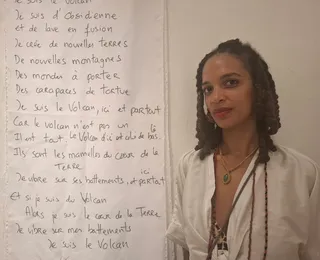 Je suis le volcan
Je suis d'Obsidienne
et de lave en fusion
Je crée de nouvelles TERRES
De nouvelles montagnes
Des mondes à PORTER
Des carapaces de TORTUE
Je suis le Volcan, ici et partout
Car le volcan n'est pas un
Il est tout. Le Volcan d'ici et de là bas
Ils sont les mamelles du cœur de la
Terre
Je vibre sur ses battements, ici et partout
Et si je suis du Volcan
Alors je suis le cœur de la Terre
Je vibre sur mes battements
Je suis le Volcan